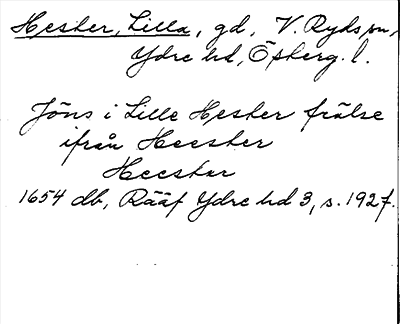 Hester, Lilla, gd, V. Ryds sn,
Ydre hd, Österg. l.
Jöns i Lille Hester frälse
ifrån Heester
Heestar
1654 db, Rääf Ydre hd 3, s. 192 f.